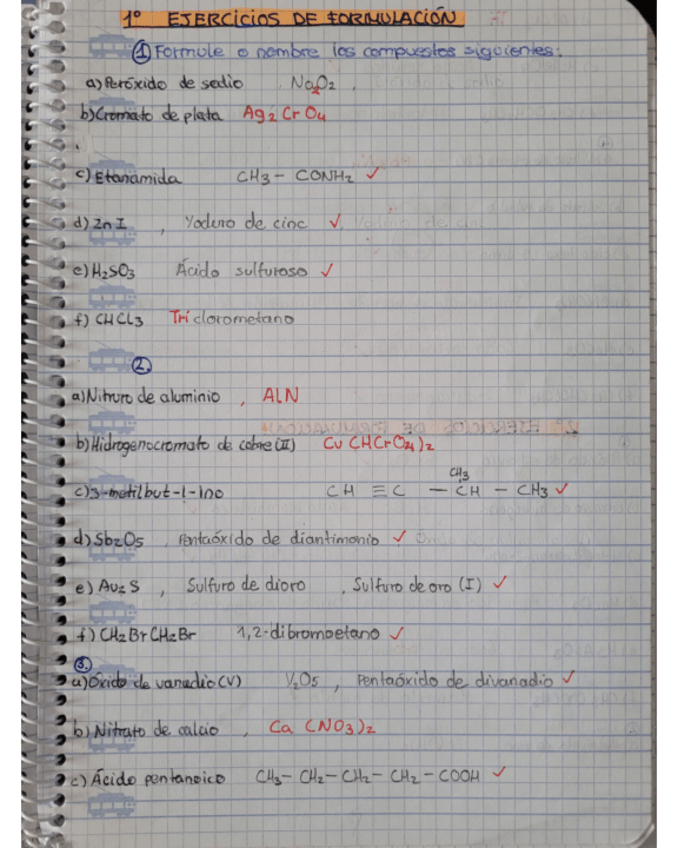 1º EJERCICIOS DE FORMULACIÓN
① Formule o nombre los compuestos siguientes:
a) Peróxido de sodio Na₂O₂ .
b) Cromato de plata Ag₂ Cr O₄
c) Etanamida CH₃ – CONH₂ ✓
d) Zn I , Yoduro de cinc ✓
e) H₂SO₃ Ácido sulfuroso ✓
f) CHCl₃ Triclorometano
②.
a) Nitruro de aluminio , AlN
b) Hidrogenocromato de cobre (II) Cu (HCrO₄)₂
CH₃
c) 3-metilbut-1-ino CH ≡ C – CH – CH₃ ✓
d) Sb₂O₅ , Pentaóxido de diantimonio ✓
e) Au₂ S , Sulfuro de dioro , Sulfuro de oro (I) ✓
f) CH₂BrCH₂Br 1,2-dibromoetano ✓
③.
a) Óxido de vanadio (V) V₂O₅ , Pentaóxido de divanadio ✓
b) Nitrato de calcio , Ca (NO₃)₂
c) Ácido pentanoico CH₃ – CH₂ – CH₂ – CH₂ – COOH ✓